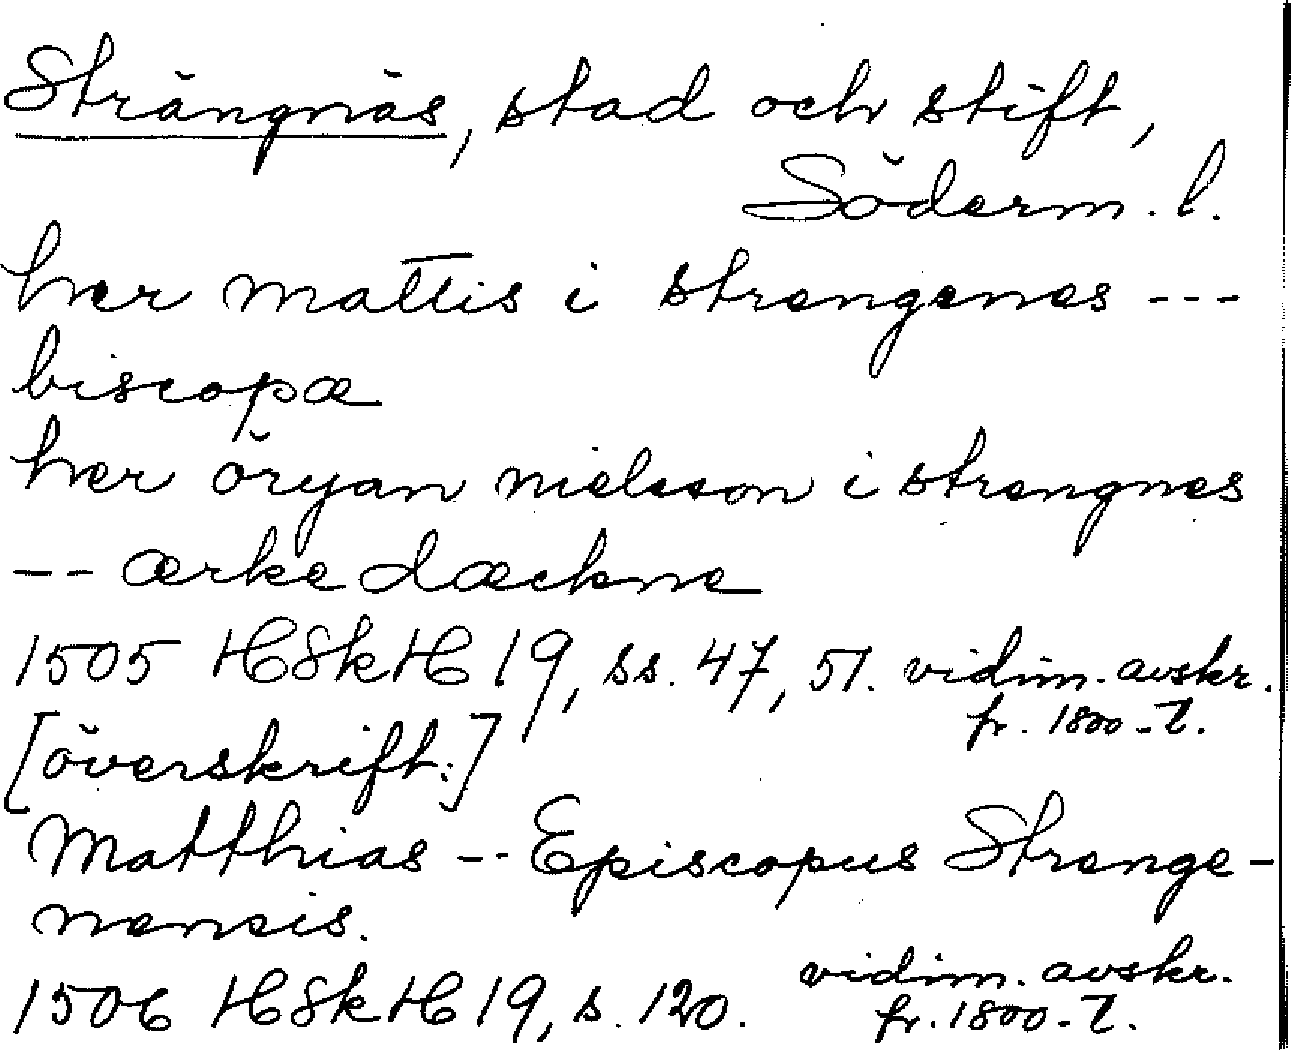 Strängnäs, stad och stift,
Söderm. l.
her mattis i strengenes ---
biscopæ
her öryan nielsson i strengnes
-- ærke dæckne
1505 HSkH 19, ss. 47, 51. vidim. avskr.
fr. 1800-t.
[överskrift:]
Matthias -- Episcopus Strenge-
nensis.
1506 HSkH 19, s. 120. vidim. avskr.
fr. 1800-t.